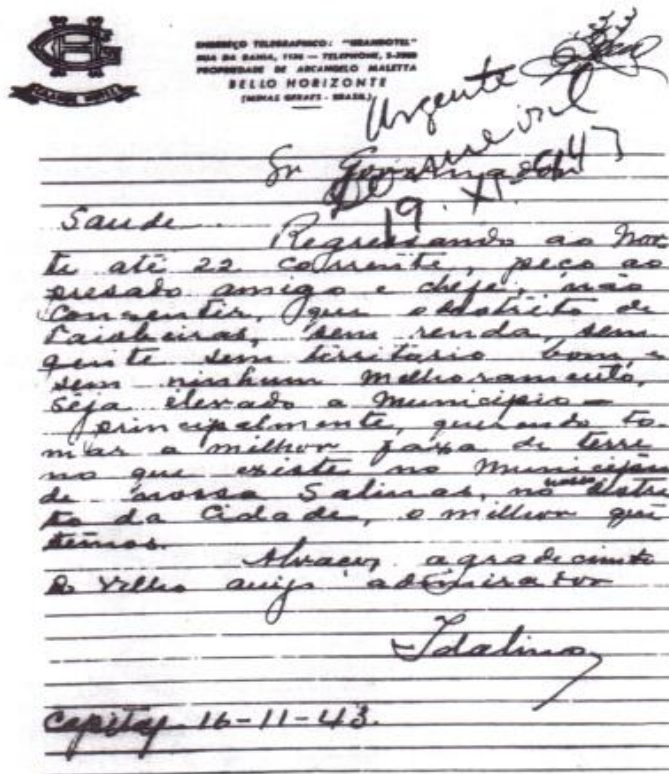 GRANDE HOTEL
ENDEREÇO TELEGRAPHICO: "GRANDOTEL"
RUA DA BAHIA, 1136 — TELEPHONE, 2-3000
PROPRIEDADE DE ARCANGELO MALETTA
BELLO HORIZONTE
(MINAS GERAES - BRASIL)
Urgente
Sr Governador
19. XI-
Saude. Regressando ao Nor
te até 22 corrente, peço ao
presado amigo e chefe, não
consentir, que o distrito de
Taiobeiras, sem renda, sem
gente sem territorio bom, e
sem ninhum melhoramento,
seja elevado a Municipio —
principalmente, querendo to-
mar a milhor faxa de terre
no que existe no Municipio
de nossa Salinas, no nosso distri
to da Cidade, o milhor que
temos.
Abraços, agradecimto
Do velho amigo admirador
Idalino
Capital 16-11-43.